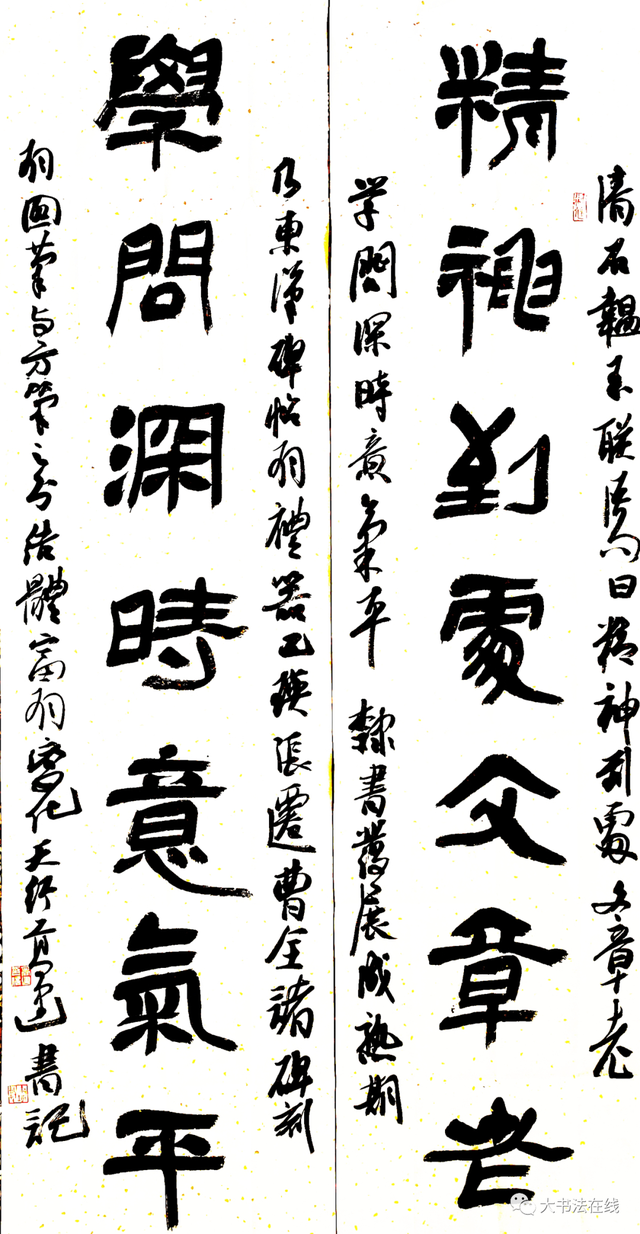 清石韞玉联語曰精神到處文章老
精神到處文章老
学問深時意氣平 隸書發展成熟期
乃東漢碑帖有禮器乙瑛張遷曹全諸碑刻
學問深時意氣平
有圓筆与方筆之分结體富有變化天行書記
大书法在线